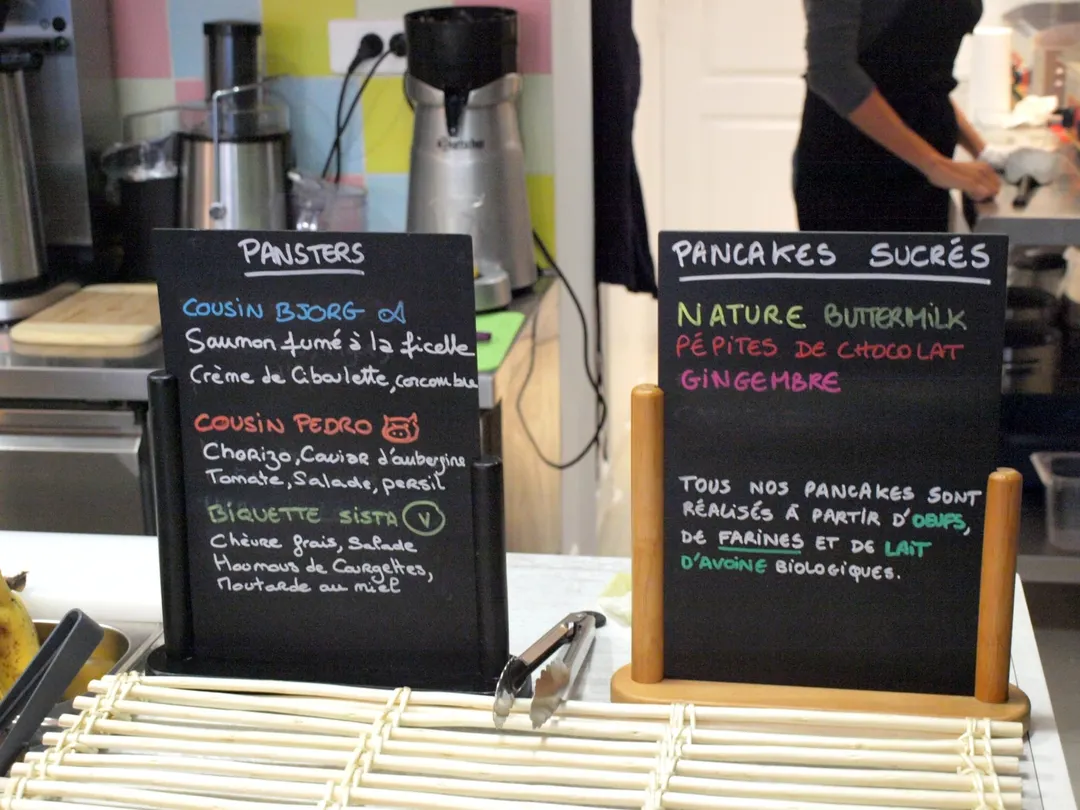 PANSTERS
COUSIN BJORG
Saumon fumé à la ficelle
Crème de Ciboulette, concombre
COUSIN PEDRO
Chorizo, Caviar d'aubergine
Tomate, Salade, persil
BIQUETTE SISTA V
Chèvre frais, Salade
Houmous de Courgettes,
Moutarde au miel
PANCAKES SUCRÉS
NATURE BUTTERMILK
PÉPITES DE CHOCOLAT
GINGEMBRE
TOUS NOS PANCAKES SONT
RÉALISÉS À PARTIR D'OEUFS,
DE FARINES ET DE LAIT
D'AVOINE BIOLOGIQUES.